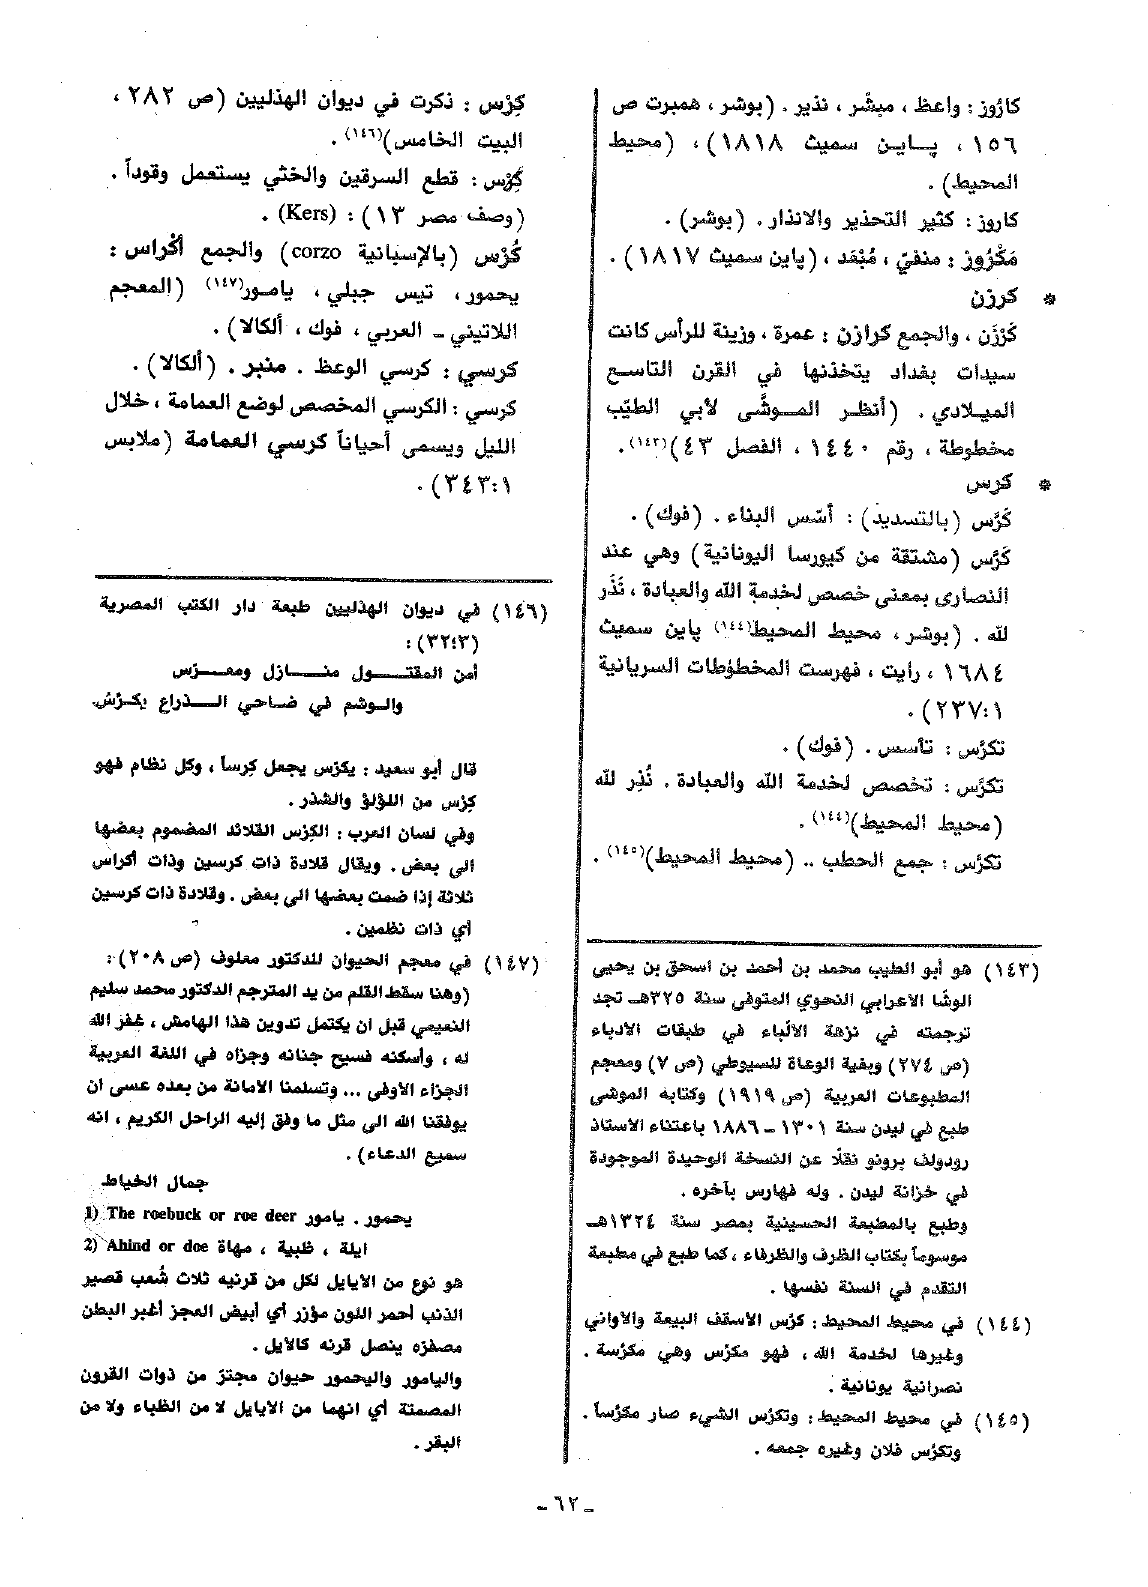 كارُوز : واعظ ، مبشّر ، نذير . (بوشر ، همبرت ص
١٥٦ ، پاين سميث ١٨١٨) ، (محيط
المحيط) .
كاروز : كثير التحذير والانذار . (بوشر) .
مَكْرُوز : منفيّ ، مُبْعَد ، (پاين سميث ١٨١٧) .
* كرزن
كَرْزَن ، والجمع كرازن : عمرة ، وزينة للرأس كانت
سيدات بغداد يتخذنها في القرن التاسع
الميلادي . (أنظر الموشَّى لأبي الطيّب
مخطوطة ، رقم ١٤٤٠ ، الفصل ٤٣)(١٤٣).
* كرس
كَرَّس (بالتسديد) : أسّس البناء . (فوك) .
كَرَّس (مشتقة من كيورسا اليونانية) وهي عند
النصارى بمعنى خصص لخدمة الله والعبادة ، نَذَر
لله . (بوشر ، محيط المحيط(١٤٤) پاين سميث
١٦٨٤ ، رأيت ، فهرست المخطوطات السريانية
٢٣٧:١) .
تكرَّس : تأسس . (فوك) .
تكرَّس : تخصص لخدمة الله والعبادة . نُذِر لله
(محيط المحيط)(١٤٤) .
تكرَّس : جمع الحطب .. (محيط المحيط)(١٤٥) .
(١٤٣) هو أبو الطيب محمد بن أحمد بن اسحق بن يحيى
الوشا الاعرابي النحوي المتوفى سنة ٣٢٥هـ تجد
ترجمته في نزهة الألباء في طبقات الادباء
(ص ٢٧٤) وبغية الوعاة للسيوطي (ص ٧) ومعجم
المطبوعات العربية (ص ١٩١٩) وكتابه الموشى
طبع في ليدن سنة ١٣٠١ - ١٨٨٦ باعتناء الأستاذ
رودولف برونو نقلًا عن النسخة الوحيدة الموجودة
في خزانة ليدن . وله فهارس بآخره .
وطبع بالمطبعة الحسينية بمصر سنة ١٣٢٤هـ
موسوماً بكتاب الظرف والظرفاء ، كما طبع في مطبعة
التقدم في السنة نفسها .
(١٤٤) في محيط المحيط : كرّس الأسقف البيعة والأواني
وغيرها لخدمة الله ، فهو مكرّس وهي مكرّسة .
نصرانية يونانية .
(١٤٥) في محيط المحيط : وتكرّس الشيء صار مكرّساً .
وتكرّس فلان وغيره جمعه .
كِرْس : ذكرت في ديوان الهذليين (ص ٢٨٢ ،
البيت الخامس)(١٤٦) .
كِرْس : قطع السرقين والخثي يستعمل وقوداً .
(وصف مصر ١٣) : (Kers) .
كُرْس (بالإسبانية corzo) والجمع أكْراس :
يحمور ، تيس جبلي ، يامور(١٤٧) (المعجم
اللاتيني - العربي ، فوك ، ألكالا) .
كرسي : كرسي الوعظ . منبر . (ألكالا) .
كرسي : الكرسي المخصص لوضع العمامة ، خلال
الليل ويسمى أحياناً كرسي العمامة (ملابس
٣٤٣:١) .
(١٤٦) في ديوان الهذليين طبعة دار الكتب المصرية
(٣٢:٣) :
أمن المقتول منازل ومعرّس
والوشم في ضاحي الذراع يكرّس
قال أبو سعيد : يكرّس يجعل كرساً ، وكل نظام فهو
كِرْس من اللؤلؤ والشذر .
وفي لسان العرب : الكِرْس القلائد المضموم بعضها
الى بعض . ويقال قلادة ذات كرسين وذات أكراس
ثلاثة إذا ضمت بعضها الى بعض . وقلادة ذات كرسين
أي ذات نظمين .
(١٤٧) في معجم الحيوان للدكتور معلوف (ص ٢٠٨) :
(وهنا سقط القلم من يد المترجم الدكتور محمد سليم
النعيمي قبل ان يكتمل تدوين هذا الهامش ، غفر الله
له ، وأسكنه فسيح جنانه وجزاه في اللغة العربية
الجزاء الأوفى ... وتسلمنا الامانة من بعده عسى ان
يوفقنا الله الى مثل ما وفق إليه الراحل الكريم ، انه
سميع الدعاء) .
جمال الخياط
1) The roebuck or roe deer يحمور . يامور
2) Ahind or doe ايلة ، ظبية ، مهاة
هو نوع من الايايل لكل من قرنيه ثلاث شُعب قصير
الذنب أحمر اللون مؤزر أي أبيض العجز أغبر البطن
مصفرّه ينصل قرنه كالأيل .
واليامور واليحمور حيوان مجترّ من ذوات القرون
المصمتة أي انهما من الايايل لا من الظباء ولا من
البقر .
- ٦٢ -